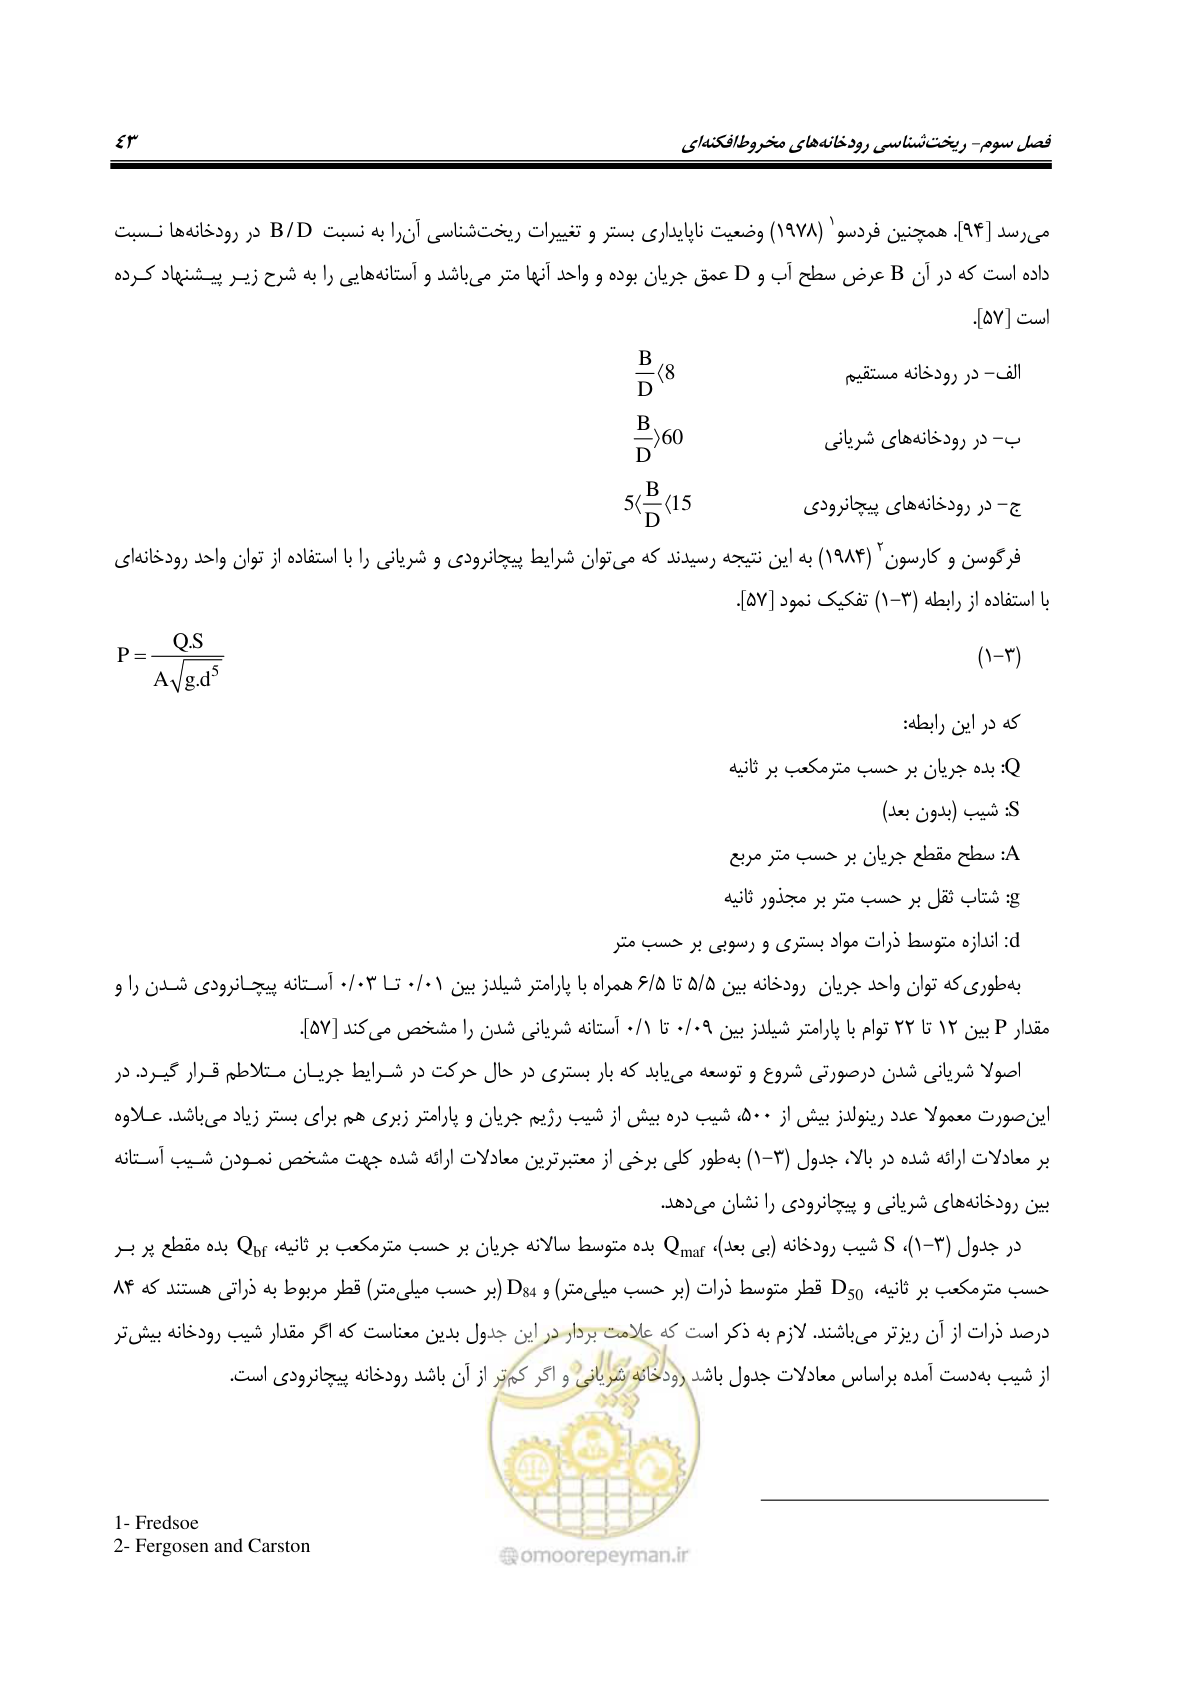 فصل سوم- ریخت‌شناسی رودخانه‌های مخروط‌افکنه‌ای ۴۳
می‌رسد [۹۴]. همچنین فردسو۱ (۱۹۷۸) وضعیت ناپایداری بستر و تغییرات ریخت‌شناسی آن‌را به نسبت B/D در رودخانه‌ها نسبت
داده است که در آن B عرض سطح آب و D عمق جریان بوده و واحد آنها متر می‌باشد و آستانه‌هایی را به شرح زیر پیشنهاد کرده
است [۵۷].
الف- در رودخانه مستقیم B/D〈8
ب- در رودخانه‌های شریانی B/D〉60
ج- در رودخانه‌های پیچانرودی 5〈B/D〈15
فرگوسن و کارسون۲ (۱۹۸۴) به این نتیجه رسیدند که می‌توان شرایط پیچانرودی و شریانی را با استفاده از توان واحد رودخانه‌ای
با استفاده از رابطه (۳-۱) تفکیک نمود [۵۷].
(۳-۱) P = Q.S / A√g.d⁵
که در این رابطه:
Q: بده جریان بر حسب مترمکعب بر ثانیه
S: شیب (بدون بعد)
A: سطح مقطع جریان بر حسب متر مربع
g: شتاب ثقل بر حسب متر بر مجذور ثانیه
d: اندازه متوسط ذرات مواد بستری و رسوبی بر حسب متر
به‌طوری‌که توان واحد جریان رودخانه بین ۵/۵ تا ۶/۵ همراه با پارامتر شیلدز بین ۰/۰۱ تا ۰/۰۳ آستانه پیچانرودی شدن را و
مقدار P بین ۱۲ تا ۲۲ توام با پارامتر شیلدز بین ۰/۰۹ تا ۰/۱ آستانه شریانی شدن را مشخص می‌کند [۵۷].
اصولا شریانی شدن درصورتی شروع و توسعه می‌یابد که بار بستری در حال حرکت در شرایط جریان متلاطم قرار گیرد. در
این‌صورت معمولا عدد رینولدز بیش از ۵۰۰، شیب دره بیش از شیب رژیم جریان و پارامتر زبری هم برای بستر زیاد می‌باشد. علاوه
بر معادلات ارائه شده در بالا، جدول (۳-۱) به‌طور کلی برخی از معتبرترین معادلات ارائه شده جهت مشخص نمودن شیب آستانه
بین رودخانه‌های شریانی و پیچانرودی را نشان می‌دهد.
در جدول (۳-۱)، S شیب رودخانه (بی بعد)، Qmaf بده متوسط سالانه جریان بر حسب مترمکعب بر ثانیه، Qbf بده مقطع پر بر
حسب مترمکعب بر ثانیه، D50 قطر متوسط ذرات (بر حسب میلی‌متر) و D84 (بر حسب میلی‌متر) قطر مربوط به ذراتی هستند که ۸۴
درصد ذرات از آن ریزتر می‌باشند. لازم به ذکر است که علامت بردار در این جدول بدین معناست که اگر مقدار شیب رودخانه بیش‌تر
از شیب به‌دست آمده براساس معادلات جدول باشد رودخانه شریانی و اگر کم‌تر از آن باشد رودخانه پیچانرودی است.
امور پیمان
1- Fredsoe
2- Fergosen and Carston
@omoorepeyman.ir